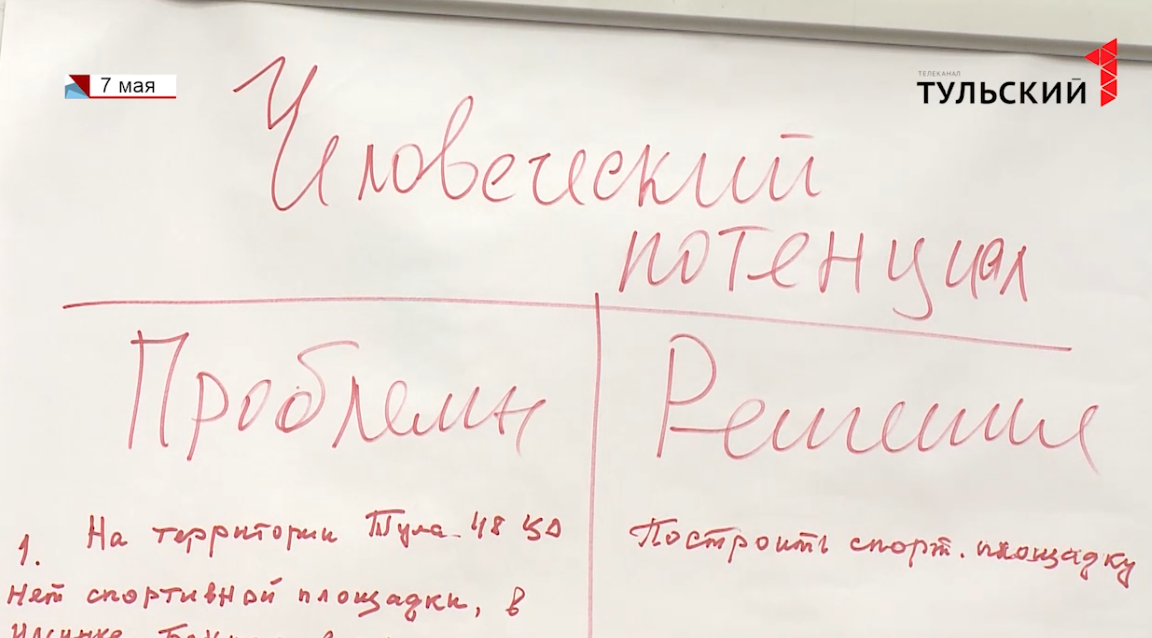 7 мая
ТЕЛЕКАНАЛ
ТУЛЬСКИЙ 1
Человеческий
потенциал
Проблемы
Решения
1. На территории Тула-
нет спортивной площадки, в
Построить спорт. площадку